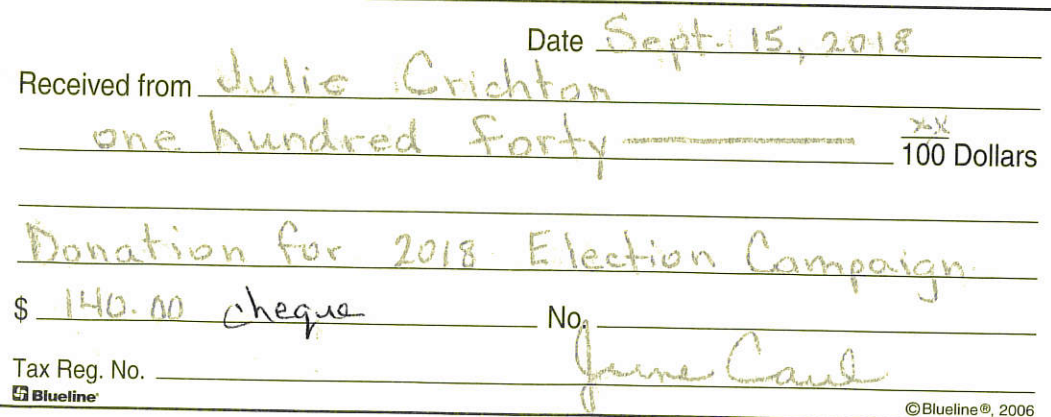 Date Sept. 15, 2018
Received from Julie Crichton
one hundred forty — xx/100 Dollars
Donation for 2018 Election Campaign
$ 140.00 cheque No.
June Caul
Tax Reg. No.
Blueline ©Blueline®, 2006